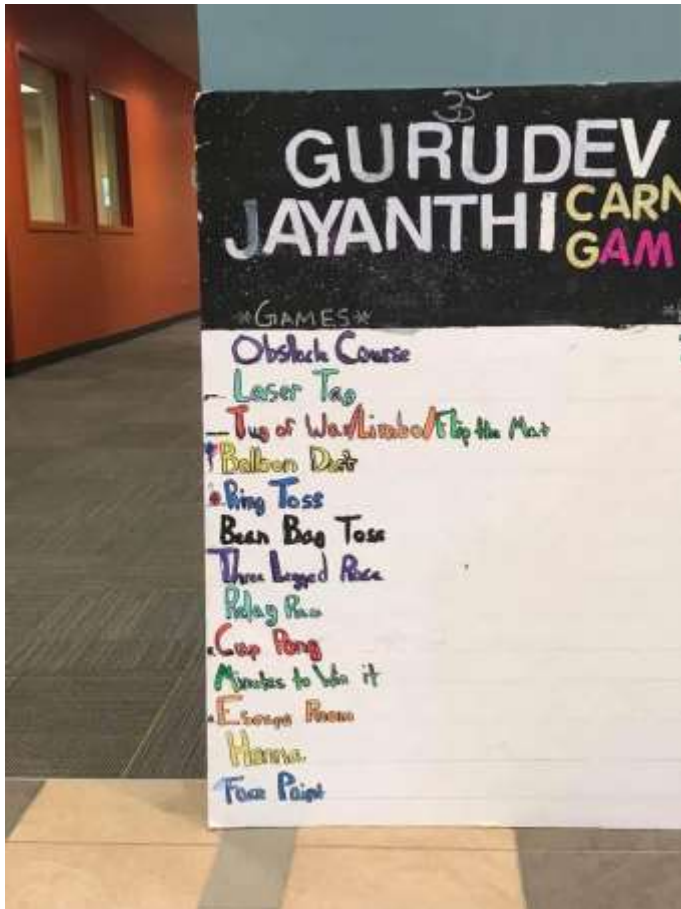 ॐ
GURUDEV
JAYANTHI CARN
GAM
*GAMES*
Obstacle Course
Laser Tag
Tug of War/Limbo/Flip the Mat
Balloon Dart
Ring Toss
Bean Bag Toss
Three Legged Race
Relay Race
Cup Pong
Minutes to Win it
Escape Room
Henna
Face Paint